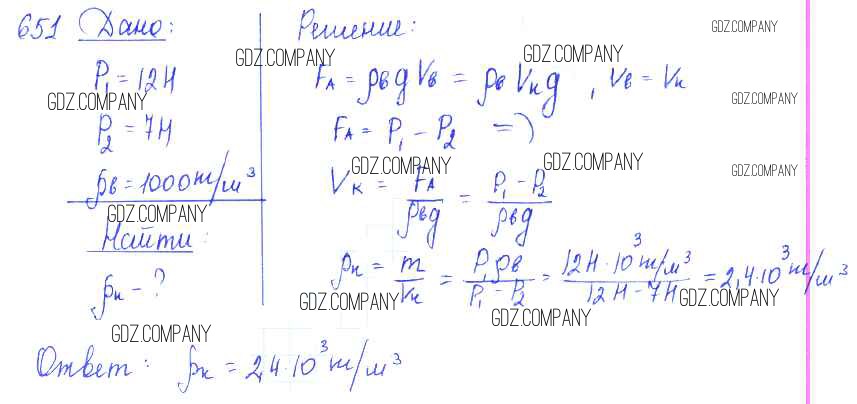 651 Дано:
P₁ = 12Н
P₂ = 7Н
ρв = 1000 кг/м³
Найти:
ρк - ?
Решение:
FА = ρв g Vв = ρв Vк g, Vв = Vк
FА = P₁ - P₂ =>
Vк = FА/ρвg = (P₁ - P₂)/ρвg
ρк = m/Vк = P₁ρв/(P₁ - P₂) = (12Н · 10³ кг/м³)/(12Н - 7Н) = 2,4·10³ кг/м³
Ответ: ρк = 2,4·10³ кг/м³
GDZ.COMPANY
GDZ.COMPANY
GDZ.COMPANY
GDZ.COMPANY
GDZ.COMPANY
GDZ.COMPANY
GDZ.COMPANY
GDZ.COMPANY
GDZ.COMPANY
GDZ.COMPANY
GDZ.COMPANY
GDZ.COMPANY
GDZ.COMPANY